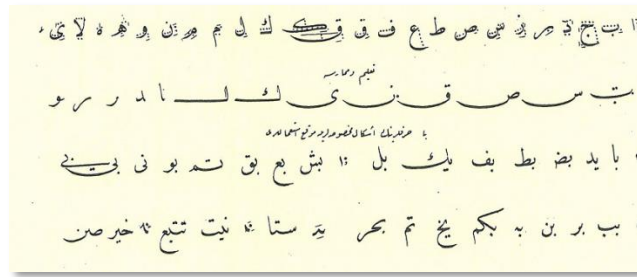 ا ب ج د ر ز س ص ط ع ف ق ق ك ل م ن و ه ه لا ى ء
تعليم وممارسه
ب س ص ق ن ى ك ل نا د ر ر و
با حرفلرينك اشكال مخصوصه لريله موقع استعمالدى
با يد بض بط بف يك بل بش بع بق تم بو نى بى
بب بر بن به بكم يخ تم بحر ستا نيت تتبع خير صن